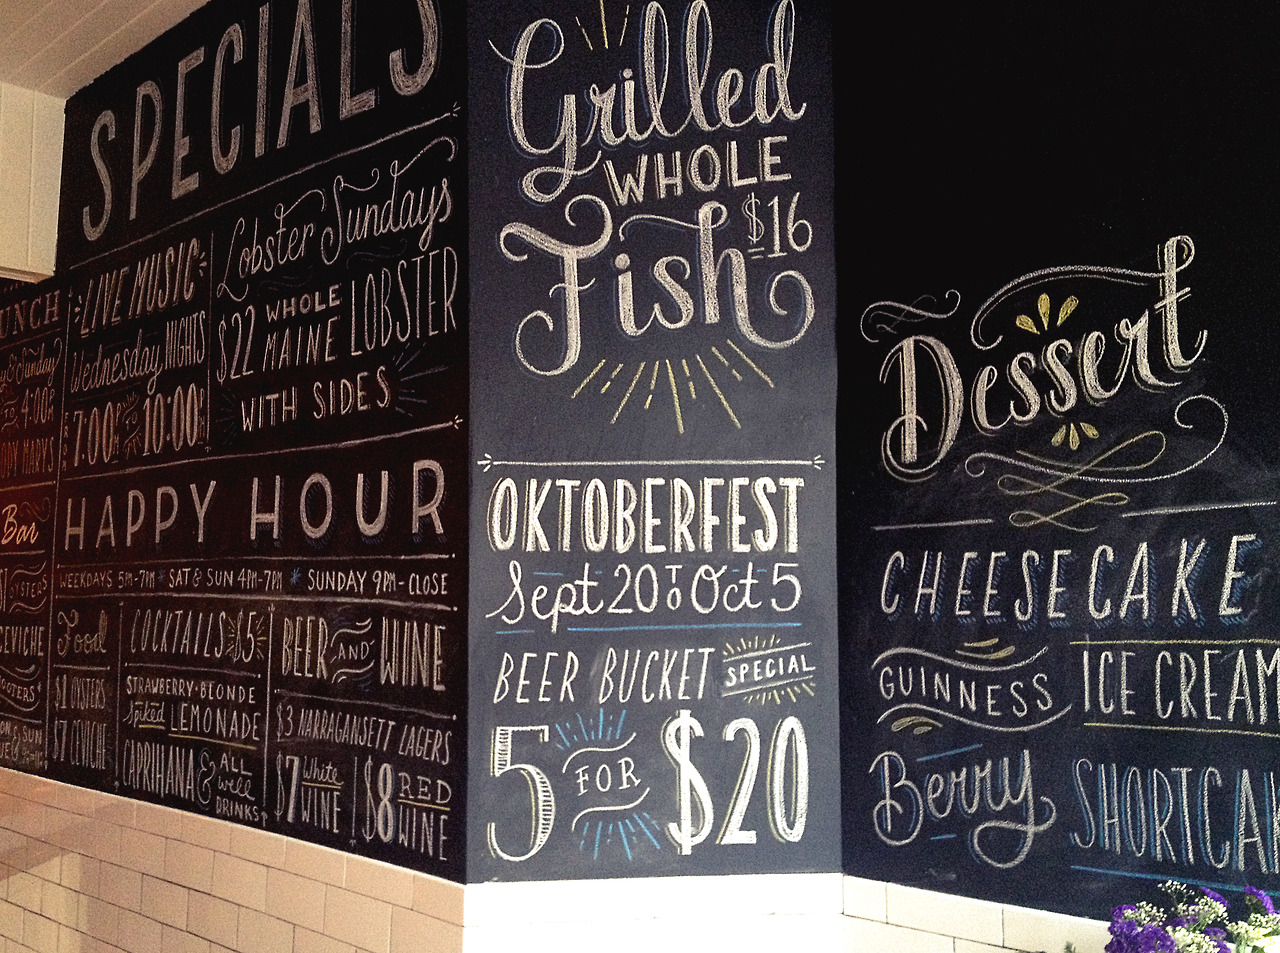 SPECIALS
LIVE MUSIC
Wednesday NIGHTS
7:00PM TO 10:00PM
Lobster Sundays
$22 WHOLE MAINE LOBSTER
WITH SIDES
UNCH
y & Sunday
TO 4:00PM
ODY MARYS
HAPPY HOUR
WEEKDAYS 5PM-7PM * SAT & SUN 4PM-7PM * SUNDAY 9PM-CLOSE
Bar
$1 OYSTERS
CEVICHE
OOTERS
Food
$1 OYSTERS
$7 CEVICHE
COCKTAILS $5
STRAWBERRY-BLONDE
Spiked LEMONADE
CAPRIHANA & ALL well DRINKS
BEER AND WINE
$3 NARRAGANSETT LAGERS
$7 White WINE
$8 RED WINE
Grilled
WHOLE
Fish $16
OKTOBERFEST
Sept 20 TO Oct 5
BEER BUCKET SPECIAL
5 FOR $20
Dessert
CHEESECAKE
GUINNESS ICE CREAM
Berry SHORTCAK